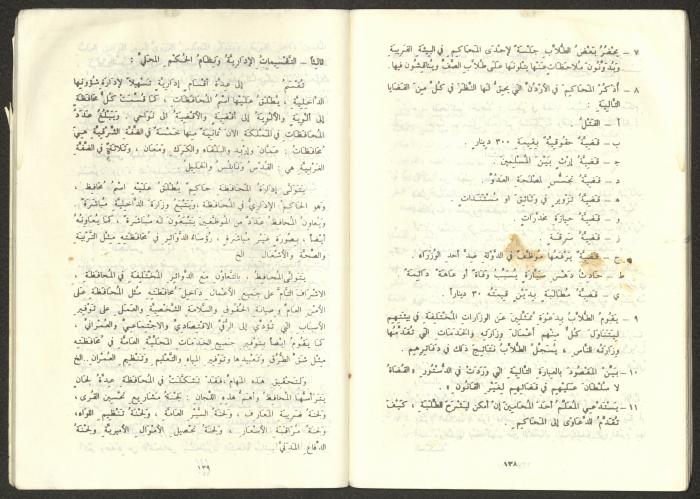 ٧ – يحضر بعض الطلاب جلسة لإحدى المحاكم في البيئة القريبة
ويدونون ملاحظات عنها يتلونها على طلاب الصف ويناقشون فيها.
٨ – أذكر المحاكم في الأردن التي يحق لها النظر في كل من القضايا
التالية :
أ – القتل
ب – قضية حقوقية بقيمة ٣٠٠ دينار .
جـ – قضية إرث بين المسلمين .
د – قضية تجسس لمصلحة العدو .
هـ – قضية تزوير في وثائق او مستندات .
و – قضية حيازة مخدرات
ز – قضية سرقة
ح – قضية يرفعها موظف في الدولة ضد أحد الوزراء .
ط – حادث دهس سيارة يسبب وفاة او عاهة دائمة .
ي – قضية مطالبة بدين قيمته ٣٠ ديناراً .
٩ – يقوم الطلاب بدعوة ممثلين عن الوزارات المختلفة في بيئتهم
ليتناول كل منهم أعمال وزارته والخدمات التي تقدمها
وزارته للناس ، يسجل الطلاب نتائج ذلك في دفاترهم .
١٠ – بين المقصود بالعبارة التالية التي وردت في الدستور « القضاة
لا سلطان عليهم في قضائهم لغير القانون » .
١١ – يستدعي المعلم أحد المحامين إن أمكن ليشرح للطلبة ، كيف
تقدم الدعاوى إلى المحاكم .
١٣٨
ثالثاً – التقسيمات الإدارية ونظام الحكم المحلي :
تقسم إلى عدة أقسام إدارية تسهيلاً لإدارة شؤونها
الداخلية ، يطلق عليها اسم المحافظات ، كما قسمت كل محافظة
إلى ألوية والألوية إلى أقضية والأقضية الى نواحي . ويبلغ عدد
المحافظات في المملكة الآن ثمانية منها خمسة في الضفة الشرقية هي
محافظات : عمان وإربد والبلقاء والكرك ومعان ، وثلاثة في الضفة
الغربية هي : القدس ونابلس والخليل .
يتولى إدارة المحافظة حاكم يطلق عليه اسم محافظ ،
وهو الحاكم الإداري في المحافظة ، ويتبع وزارة الداخلية مباشرة .
ويعاون المحافظ عدد من الموظفين يتبعون له مباشرة ، كما يعاونه
أيضاً ، بصورة غير مباشرة ، رؤساء الدوائر في محافظته مثل التربية
والصحة والأشغال الخ
يتولى المحافظ ، بالتعاون مع الدوائر المختلفة في المحافظة ،
الاشراف التام على جميع الأعمال داخل محافظته مثل المحافظة على
الأمن العام وصيانة الحقوق والسلامة الشخصية والعمل على توفير
الأسباب التي تؤدي إلى الرقي الاقتصادي والاجتماعي والعمراني ،
كما يقوم ايضاً بتوفير جميع الخدمات المحلية العامة في محافظته
مثل شق الطرق وتعبيدها وتوفير المياه والتعليم وتنظيم العمران .. الخ
ولتحقيق هذه المهام فقد تشكلت في المحافظة عدة لجان
يترأسها المحافظ وأهم هذه اللجان : لجنة مشاريع تحسين القرى ،
ولجنة ضريبة المعارف ، ولجنة السير العامة ، ولجنة تنظيم اللواء ،
ولجنة مراقبة الأسعار ، ولجنة تحصيل الأموال الأميرية ولجنة
الدفاع المدني .
١٣٩